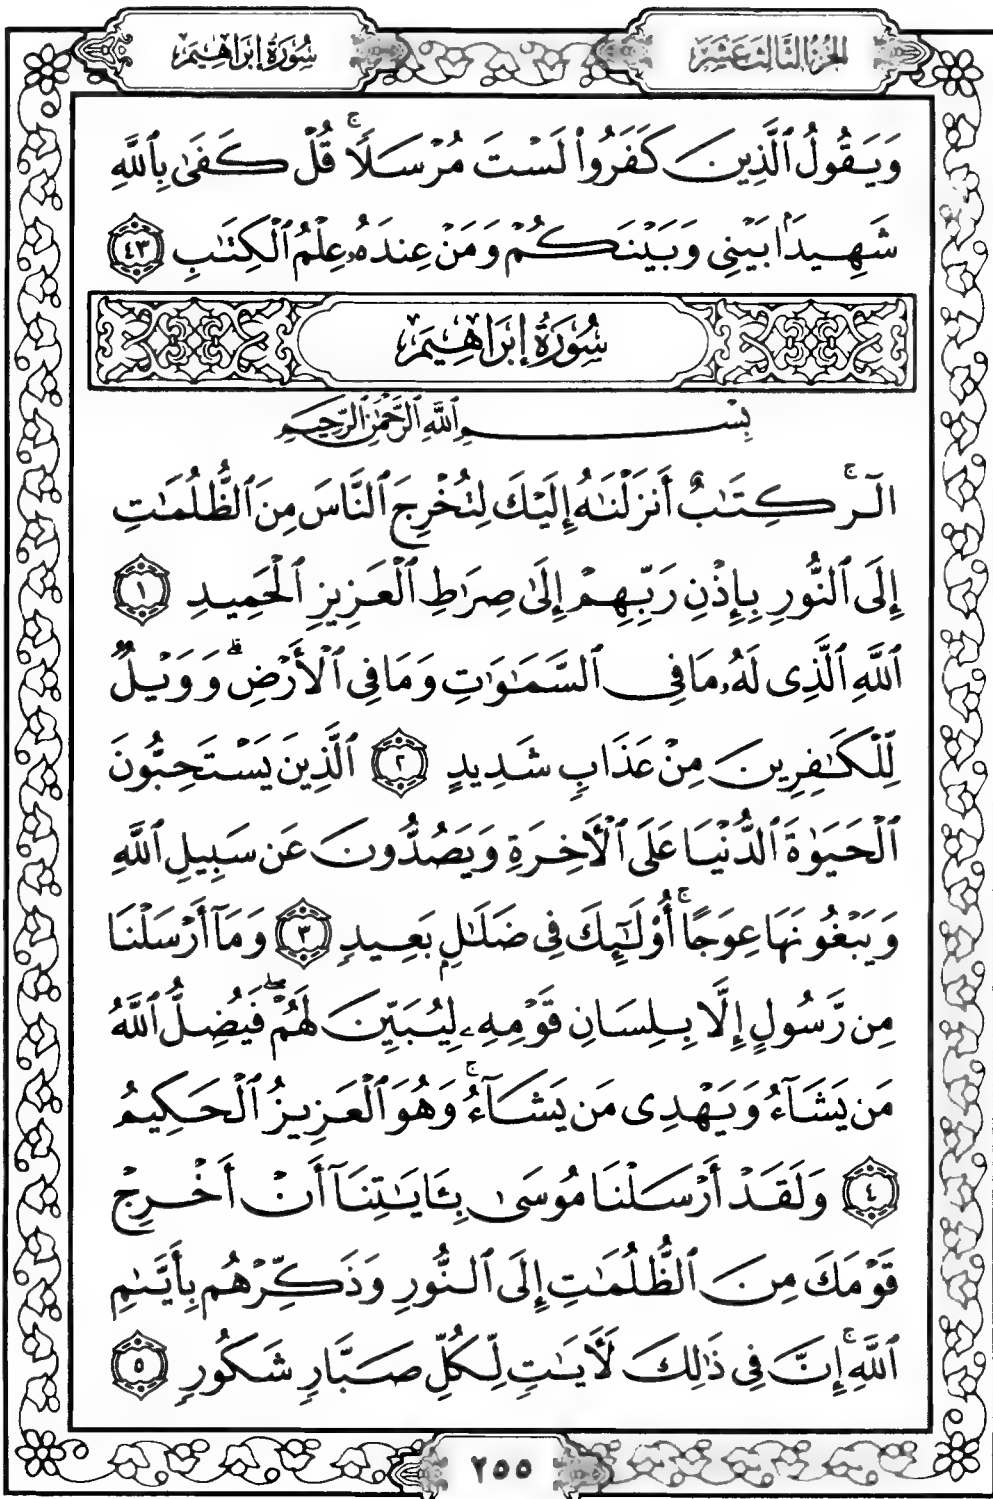 الجزء الثالث عشر
سورة إبراهيم
وَيَقُولُ ٱلَّذِينَ كَفَرُواْ لَسْتَ مُرْسَلًاۚ قُلْ كَفَىٰ بِٱللَّهِ
شَهِيدَۢا بَيْنِى وَبَيْنَكُمْ وَمَنْ عِندَهُۥ عِلْمُ ٱلْكِتَٰبِ ٤٣
سُورَةُ إِبْرَاهِيمَ
بِسْمِ ٱللَّهِ ٱلرَّحْمَٰنِ ٱلرَّحِيمِ
الٓرۚ كِتَٰبٌ أَنزَلْنَٰهُ إِلَيْكَ لِتُخْرِجَ ٱلنَّاسَ مِنَ ٱلظُّلُمَٰتِ
إِلَى ٱلنُّورِ بِإِذْنِ رَبِّهِمْ إِلَىٰ صِرَٰطِ ٱلْعَزِيزِ ٱلْحَمِيدِ ١
ٱللَّهِ ٱلَّذِى لَهُۥ مَا فِى ٱلسَّمَٰوَٰتِ وَمَا فِى ٱلْأَرْضِۗ وَوَيْلٌ
لِّلْكَٰفِرِينَ مِنْ عَذَابٍ شَدِيدٍ ٢ ٱلَّذِينَ يَسْتَحِبُّونَ
ٱلْحَيَوٰةَ ٱلدُّنْيَا عَلَى ٱلْأَخِرَةِ وَيَصُدُّونَ عَن سَبِيلِ ٱللَّهِ
وَيَبْغُونَهَا عِوَجًاۚ أُوْلَٰٓئِكَ فِى ضَلَٰلٍۭ بَعِيدٍ ٣ وَمَآ أَرْسَلْنَا
مِن رَّسُولٍ إِلَّا بِلِسَانِ قَوْمِهِۦ لِيُبَيِّنَ لَهُمْۖ فَيُضِلُّ ٱللَّهُ
مَن يَشَآءُ وَيَهْدِى مَن يَشَآءُۚ وَهُوَ ٱلْعَزِيزُ ٱلْحَكِيمُ
٤ وَلَقَدْ أَرْسَلْنَا مُوسَىٰ بِـَٔايَٰتِنَآ أَنْ أَخْرِجْ
قَوْمَكَ مِنَ ٱلظُّلُمَٰتِ إِلَى ٱلنُّورِ وَذَكِّرْهُم بِأَيَّىٰمِ
ٱللَّهِۚ إِنَّ فِى ذَٰلِكَ لَأٓيَٰتٍ لِّكُلِّ صَبَّارٍ شَكُورٍ ٥
٢٥٥